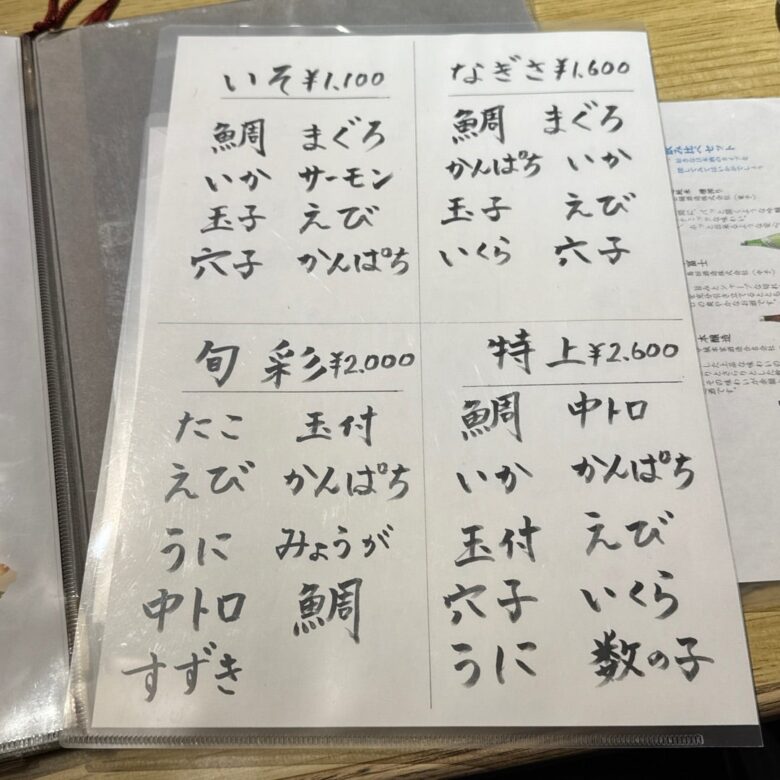 いそ ¥1,100
鯛 まぐろ
いか サーモン
玉子 えび
穴子 かんぱち
なぎさ ¥1,600
鯛 まぐろ
かんぱち いか
玉子 えび
いくら 穴子
旬彩 ¥2,000
たこ 玉付
えび かんぱち
うに みょうが
中トロ 鯛
すずき
特上 ¥2,600
鯛 中トロ
いか かんぱち
玉付 えび
穴子 いくら
うに 数の子
飲み比べセット
本醸造